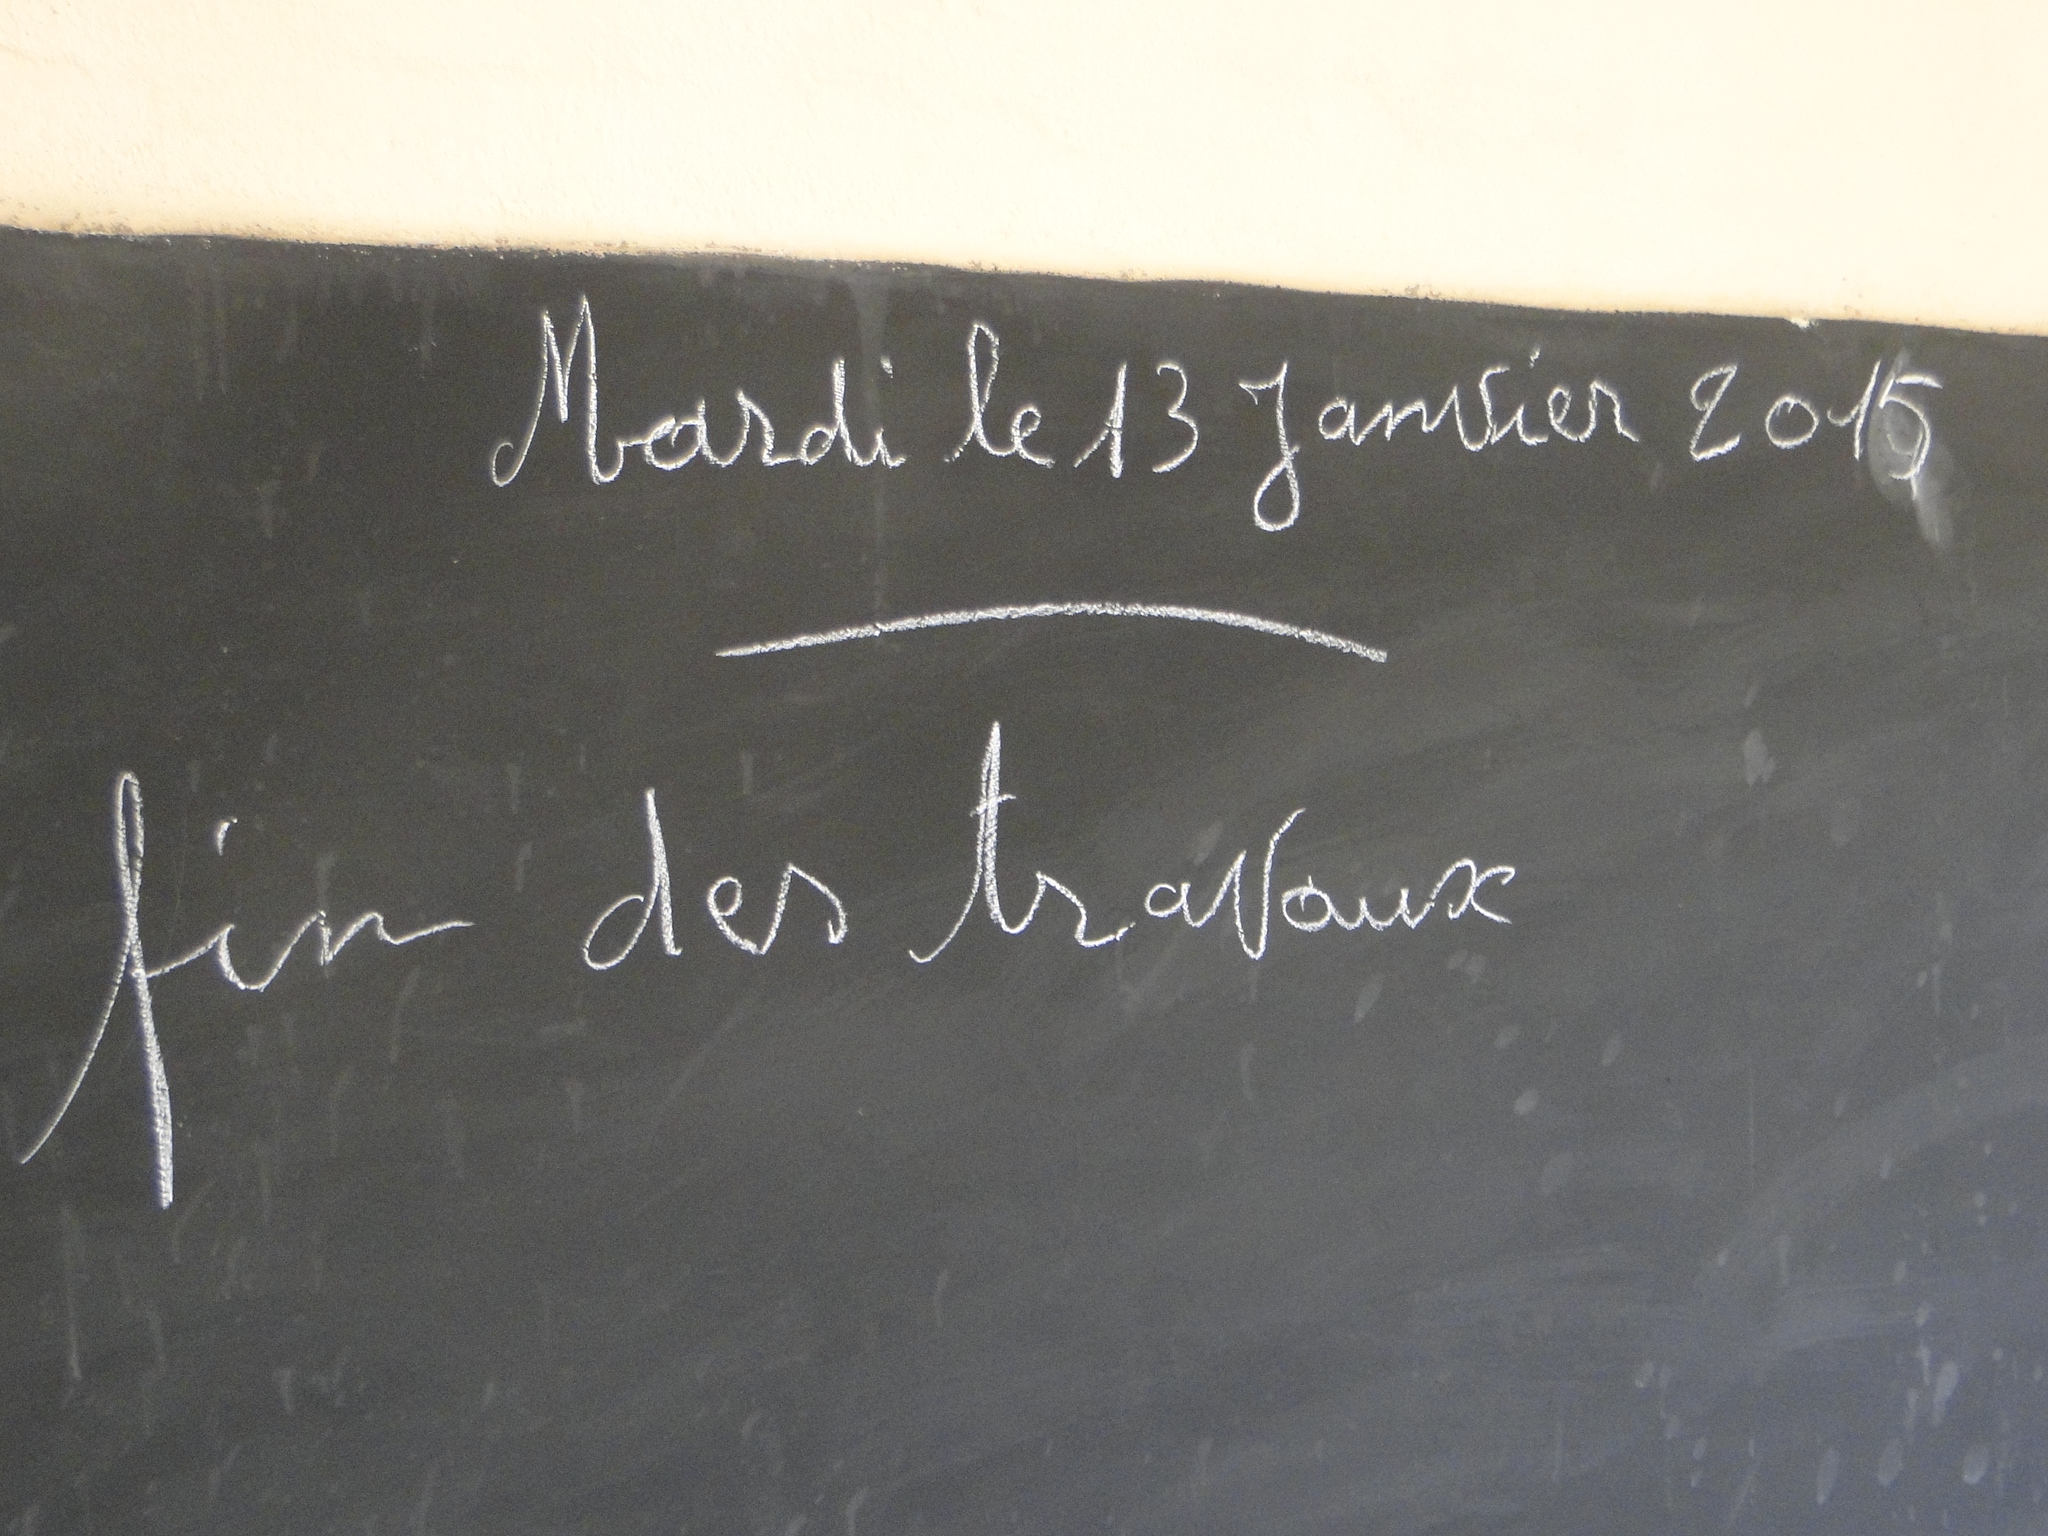 Mardi le 13 Janvier 2015
fin des travaux